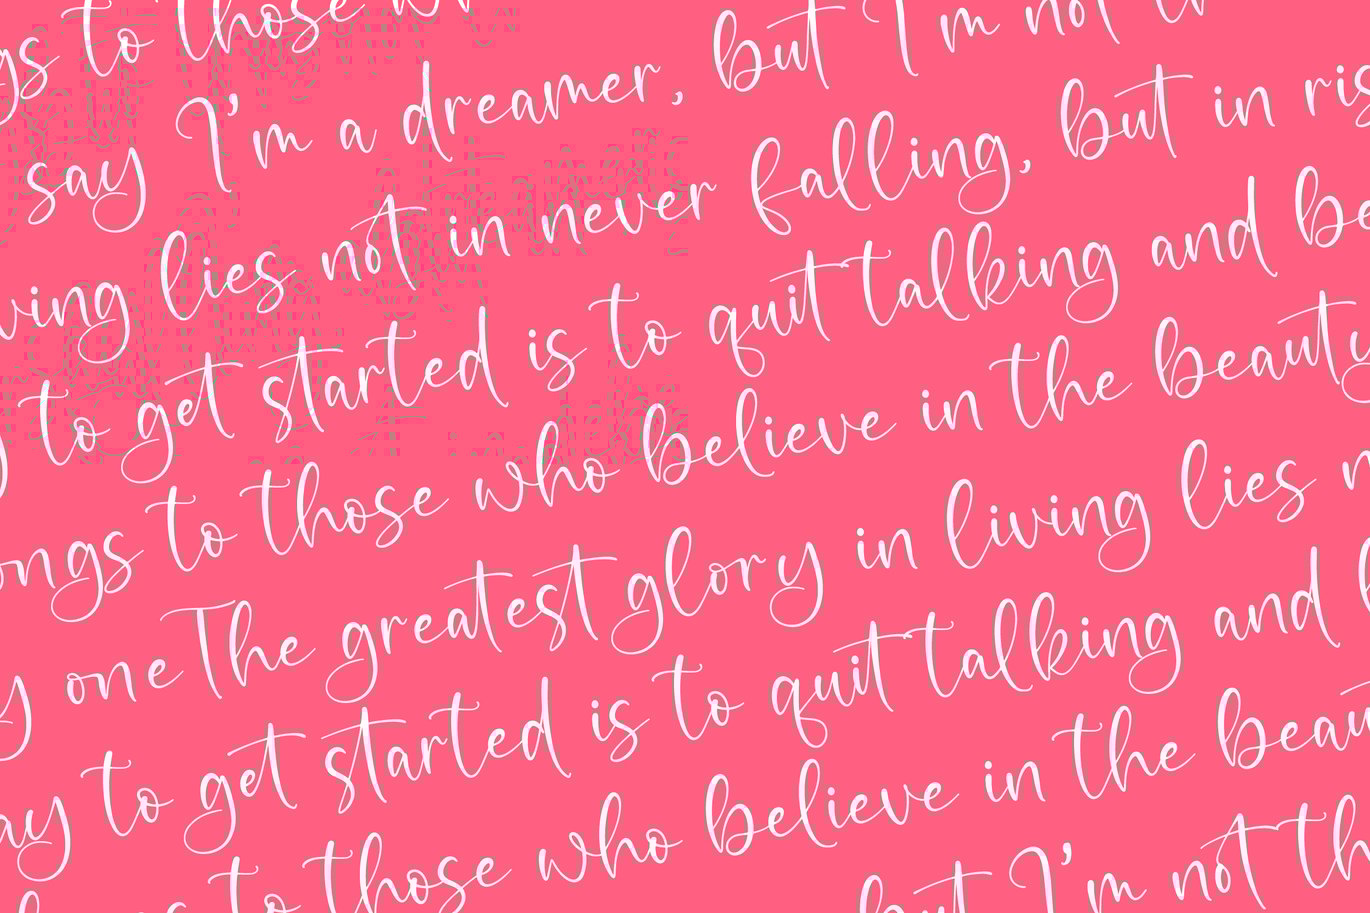 gs to those w
say I'm a dreamer, but I'm not th
ving lies not in never falling, but in ris
y to get started is to quit talking and be
ongs to those who believe in the beauty
y oneThe greatest glory in living lies n
ay to get started is to quit talking and b
to those who believe in the beau
but I'm not th